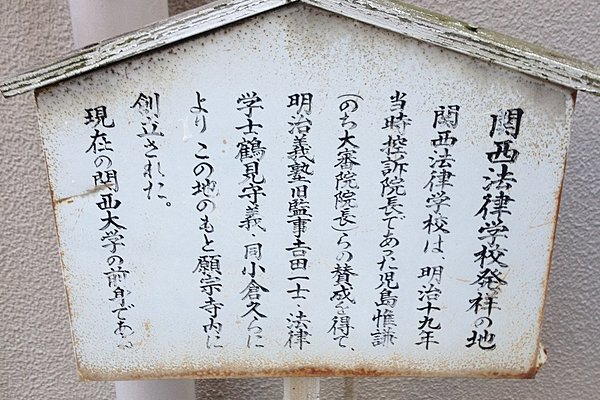 関西法律学校発祥の地
関西法律学校は、明治十九年
当時控訴院長であった児島惟謙
(のち大審院院長)らの賛成を得て、
明治義塾旧監事吉田一士・法律
学士鶴見守義、同小倉久らに
より この地のもと願宗寺内に
創立された。
現在の関西大学の前身である